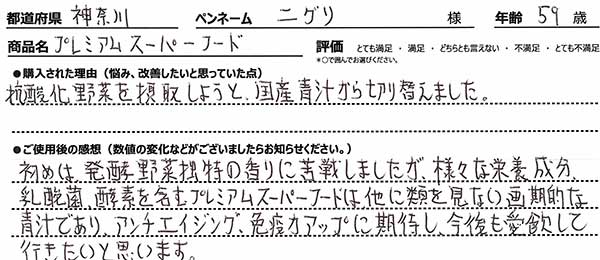 都道府県 神奈川 ペンネーム ニグリ 様 年齢 59 歳
商品名 プレミアムスーパーフード 評価 とても満足 ・ 満足 ・ どちらとも言えない ・ 不満足 ・ とても不満足
*○で囲んでお選びください。
●購入された理由（悩み、改善したいと思っていた点）
抗酸化野菜を摂取しようと、国産青汁から切り替えました。
●ご使用後の感想（数値の変化などがございましたらお知らせください。）
初めは、発酵野菜独特の香りに苦戦しましたが、様々な栄養成分、
乳酸菌、酵素を含むプレミアムスーパーフードは、他に類を見ない画期的な
青汁であり、アンチエイジング、免疫力アップに期待し、今後も愛飲して
行きたいと思います。